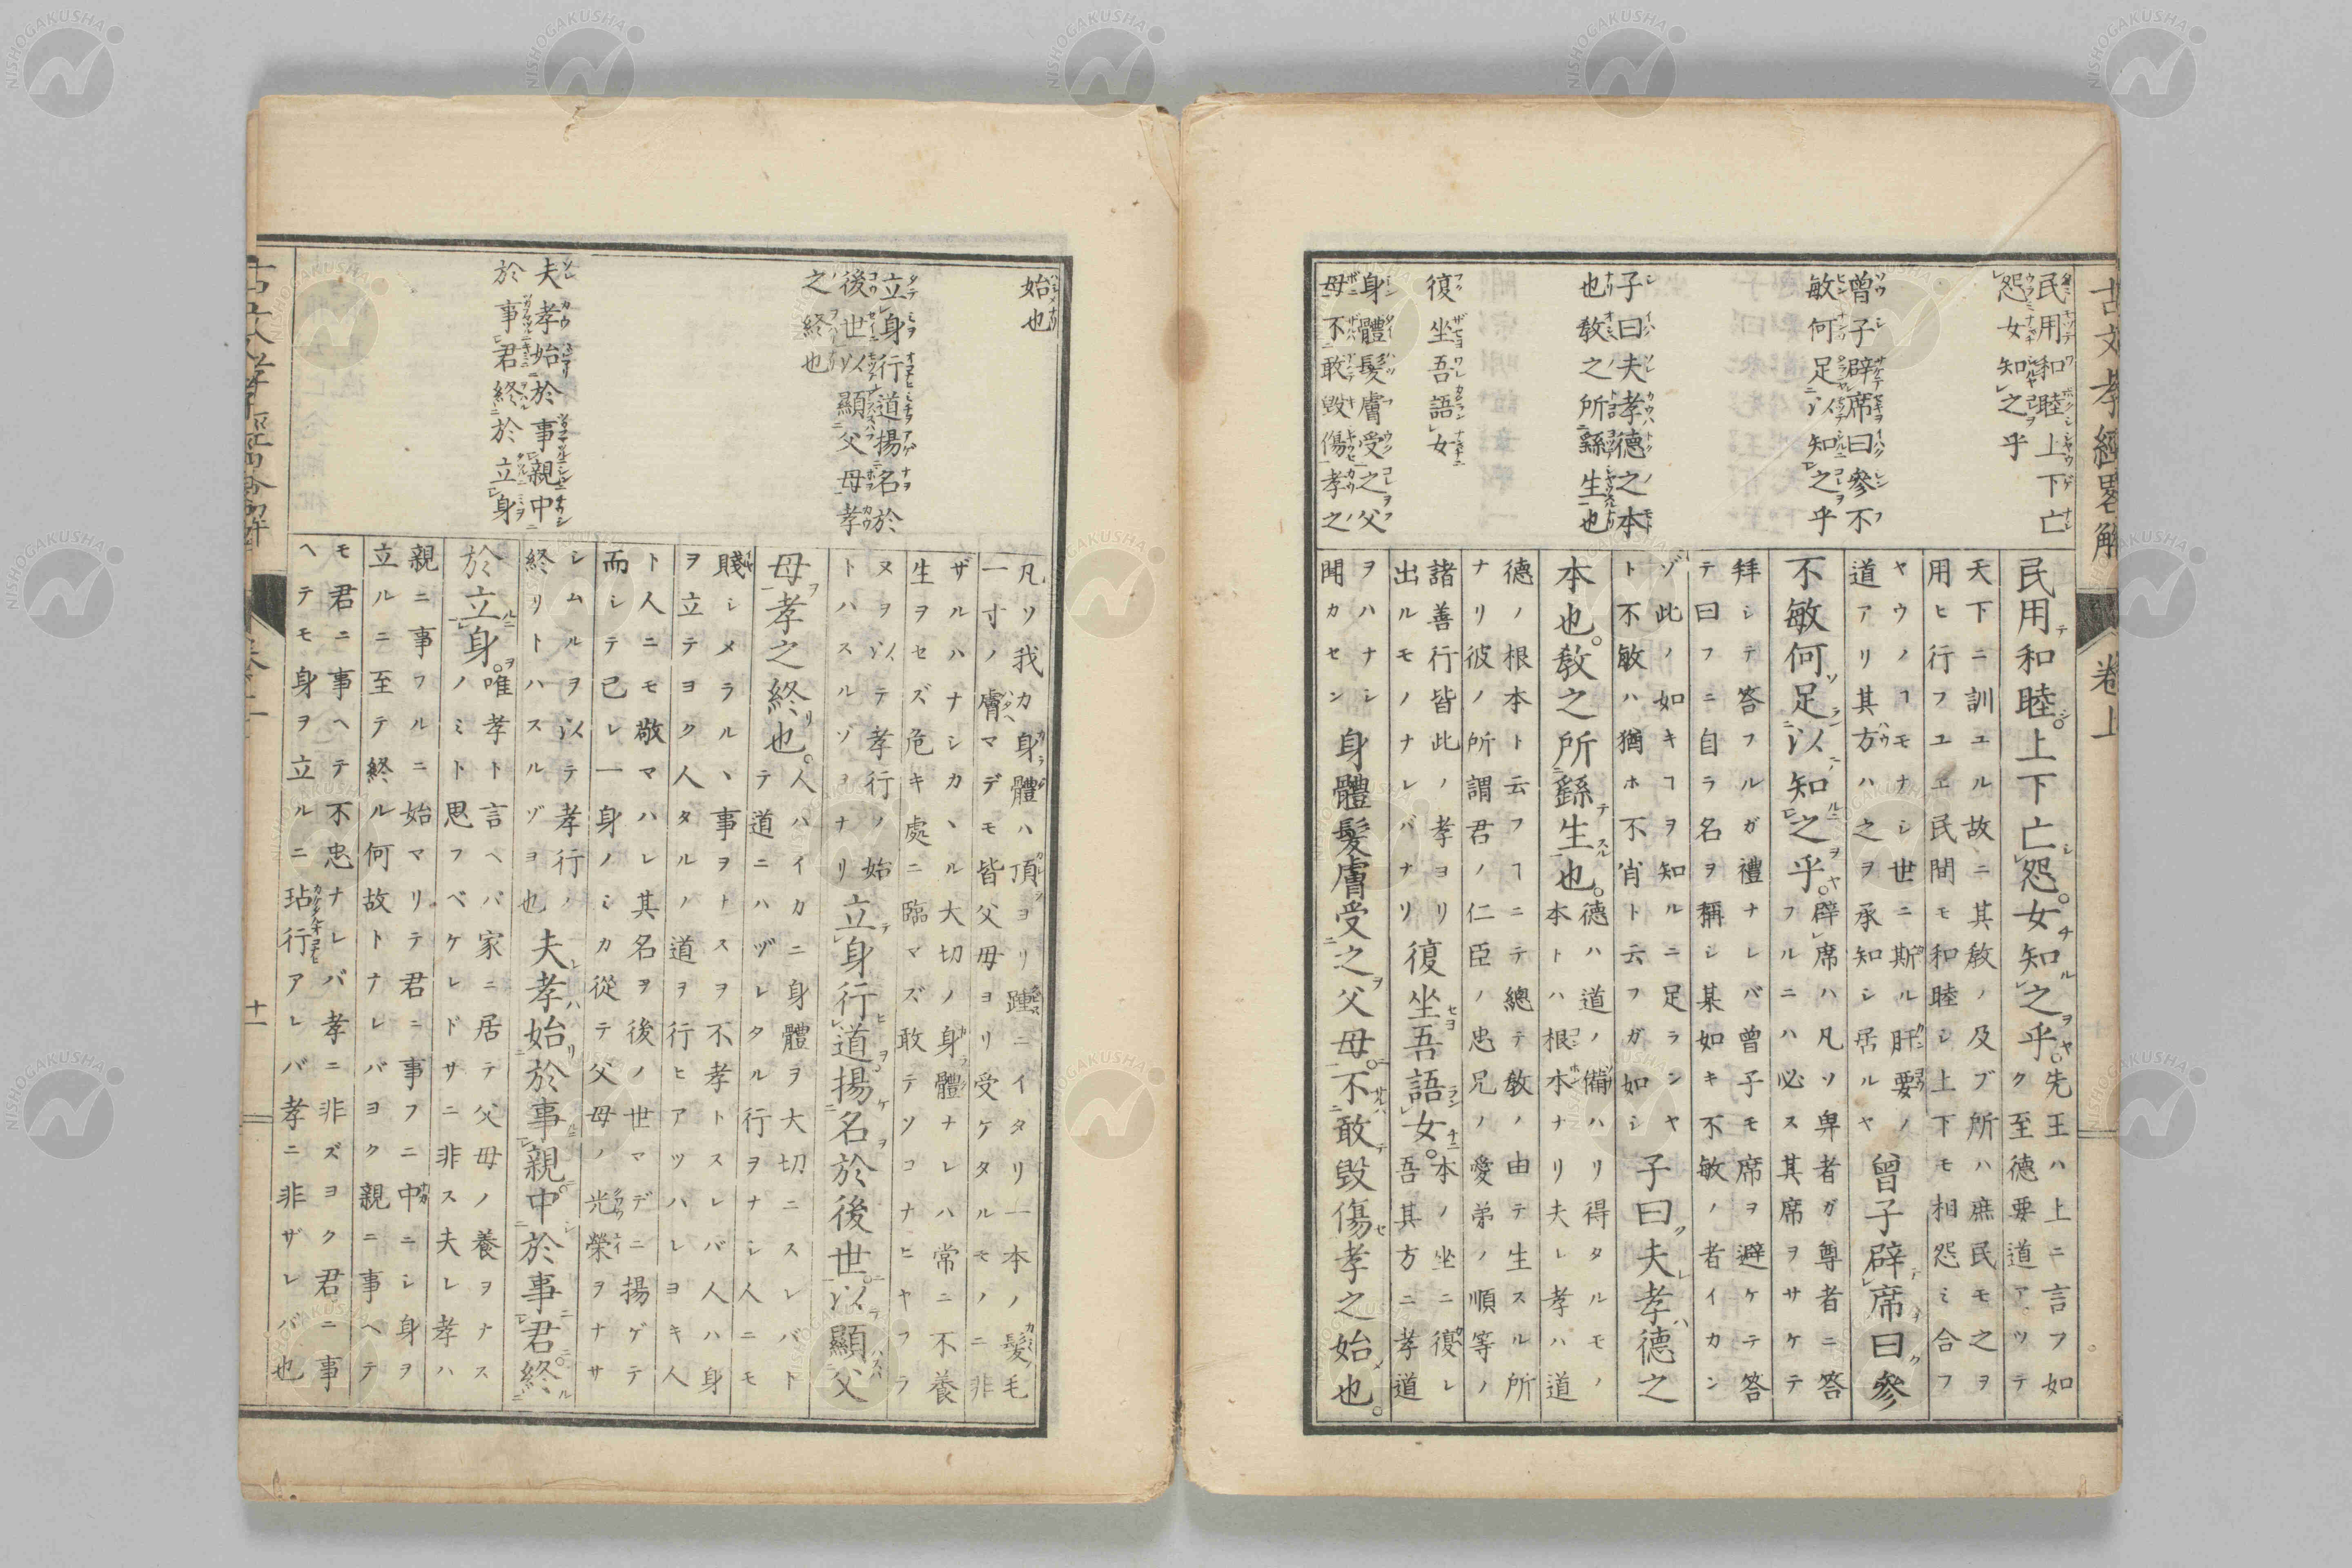 古文孝經畧解 卷上
民用和睦上下亡
怨女知之乎
曾子辟席曰參不
敏何足以知之乎
子曰夫孝德之本
也教之所繇生也
復坐吾語女
身體髮膚受之父
母不敢毀傷孝之
民用和睦。上下亡怨。女知之乎。先王ハ上ニ言フ如
ク至德要道アツテ
天下ニ訓ユル故ニ其教ノ及ブ所ハ庶民モ之ヲ
用ヒ行フユヱ民間モ和睦シ上下モ相怨ミ合フ
ヤウノヿモナシ世ニ斯ル肝要ノ
道アリ其方ハ之ヲ承知シ居ルヤ
曾子辟席曰參
不敏何足以知之乎。辟席ハ凡ソ卑者ガ尊者ニ答
フルニハ必ス其席ヲサケテ
拜シテ答フルガ禮ナレバ曾子モ席ヲ避ケテ答
テ曰フニ自ラ名ヲ稱シ某如キ不敏ノ者イカン
ゾ此ノ如キヿヲ知ルニ足ランヤ
ト不敏ハ猶ホ不肖ト云フガ如シ
子曰夫孝德之
本也。教之所繇生也。德ハ道ノ備ハリ得タルモノ
本トハ根本ナリ夫レ孝ハ道
德ノ根本ト云フヿニテ總テ教ノ由テ生スル所
ナリ彼ノ所謂君ノ仁臣ノ忠兄ノ愛弟ノ順等ノ
諸善行皆此ノ孝ヨリ
出ルモノナレバナリ
復坐吾語女。本ノ坐ニ復レ
吾其方ニ孝道
ヲハナシ
聞カセン
身體髮膚受之父母。不敢毀傷孝之始也。
始也
立身行道揚名於
後世以顯父母孝
之終也
夫孝始於事親中
於事君終於立身
凡ソ我カ身體ハ頂ヨリ踵ニイタリ一本ノ髮毛
一寸ノ膚マデモ皆父母ヨリ受ケタルモノニ非
ザルハナシカヽル大切ノ身體ナレハ常ニ不養
生ヲセズ危キ處ニ臨マズ敢テソコナヒヤフラ
ヌヲ以テ孝行ノ始
トハスルゾヨナリ
立身行道揚名於後世。以顯父
母孝之終也。人ハイカニ身體ヲ大切ニスレバト
テ道ニハヅレタル行ヲナシ人ニモ
賤シメラルヽ事ヲナスヲ不孝トスレバ人ハ身
ヲ立テヨク人タルノ道ヲ行ヒアツハレヨキ人
ト人ニモ敬マハレ其名ヲ後ノ世マデニ揚ゲテ
而シテ已レ一身ノミカ從テ父母ノ光榮ヲナサ
シムルヲ以テ孝行ノ
終リトハスルゾヨ也
夫孝始於事親。中於事君。終
於立身。唯孝ト言ヘバ家ニ居テ父母ノ養ヲナス
ノミト思フベケレドサニ非ス夫レ孝ハ
親ニ事フルニ始マリテ君ニ事フニ中ニシ身ヲ
立ルニ至テ終ル何故トナレバヨク親ニ事ヘテ
モ君ニ事ヘテ不忠ナレバ孝ニ非ズヨク君ニ事
ヘテモ身ヲ立ルニ玷行アレバ孝ニ非ザレバ也
十一
NISHOGAKUSHA